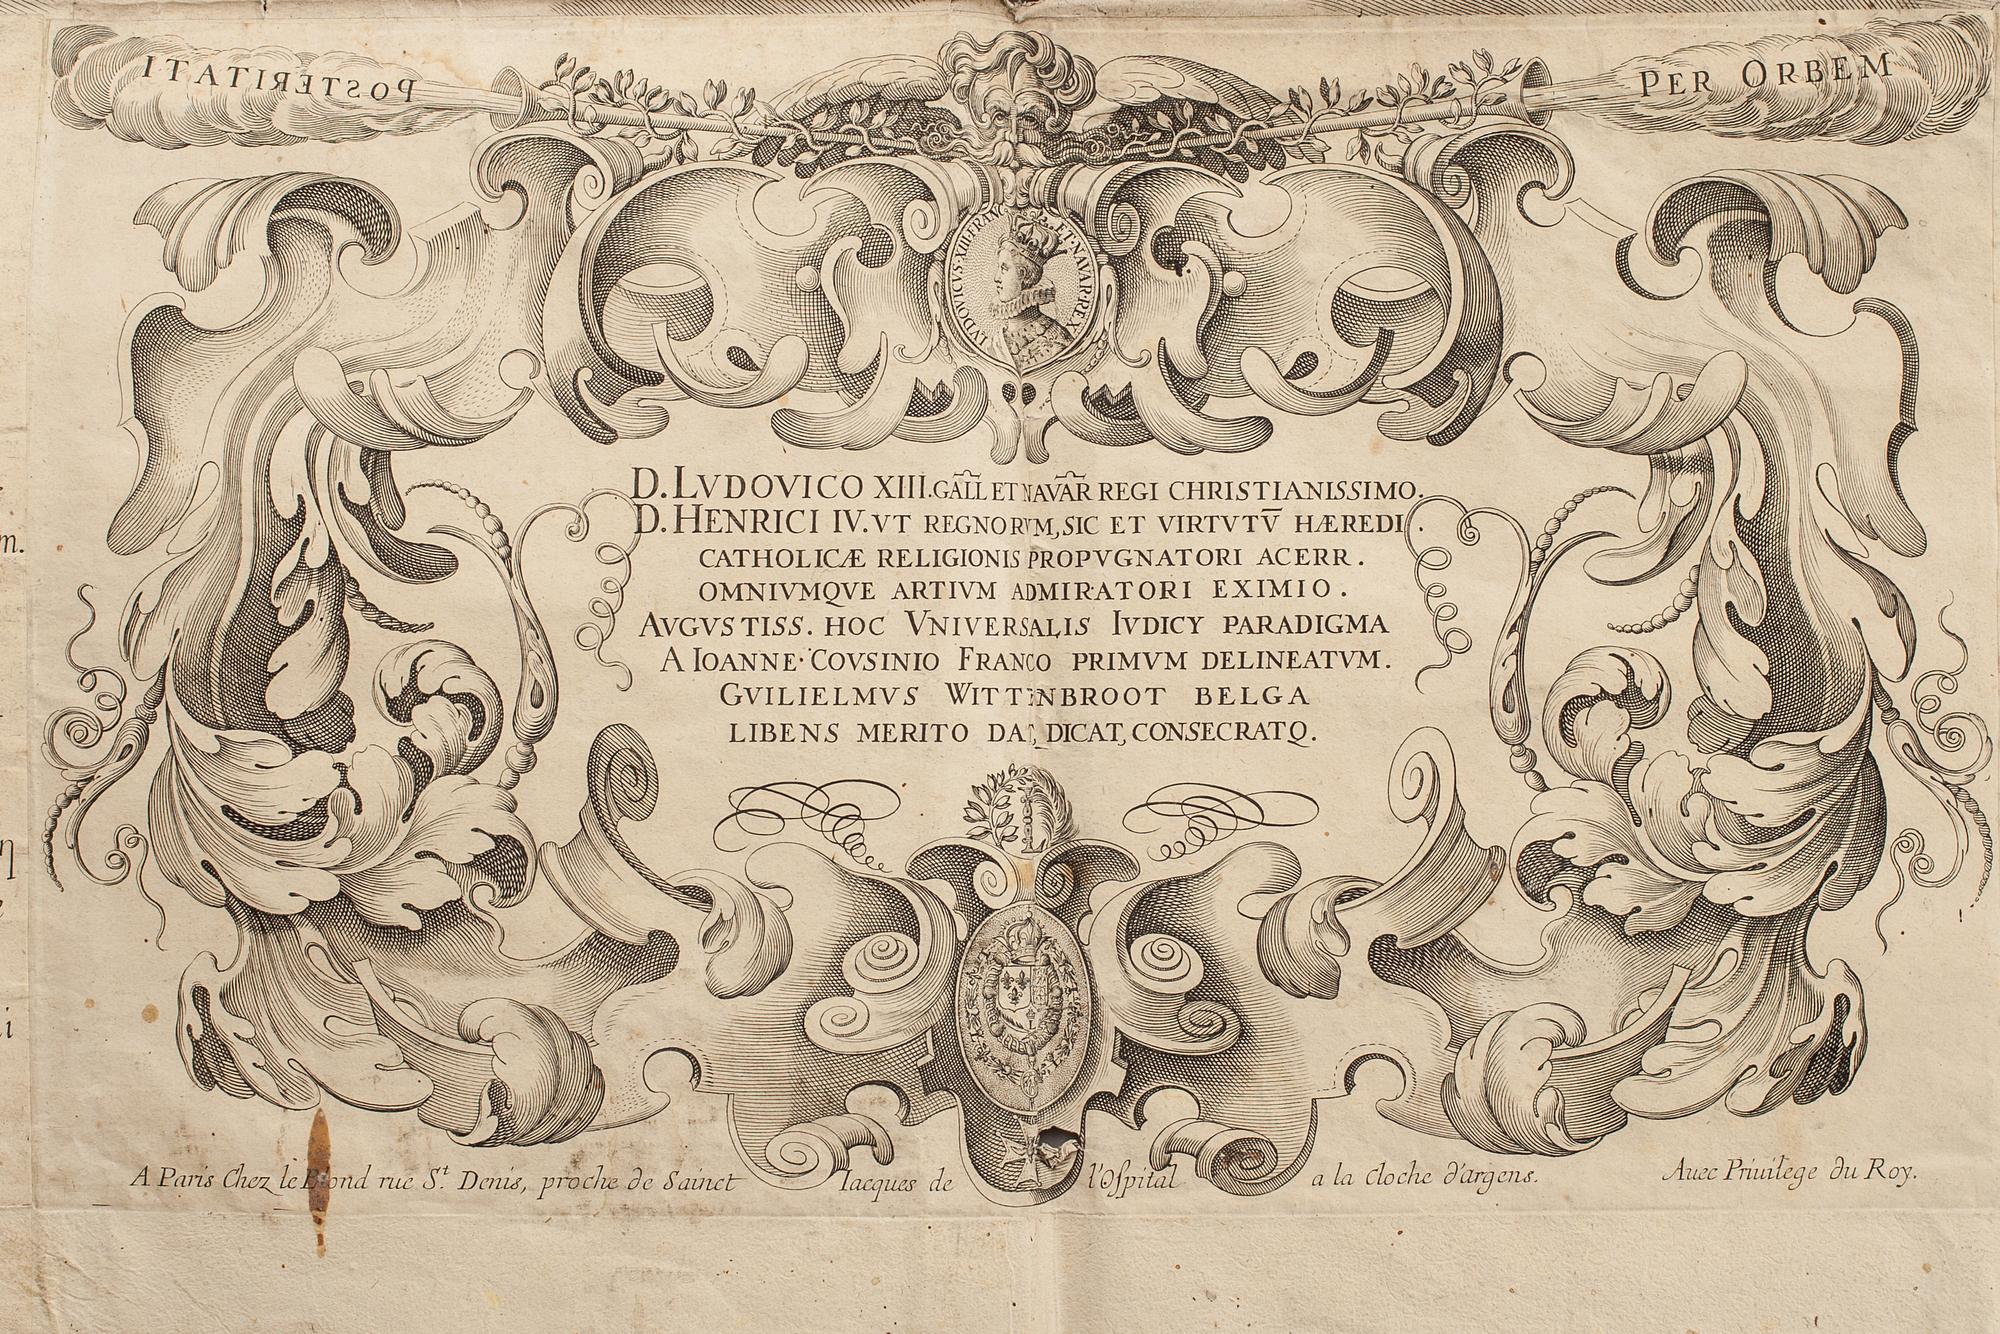 POSTERITATI
PER ORBEM
LVDOVICVS·XIII·FRANC ET·NAVAR·REX
D. LVDOVICO XIII. GALL ET NAVAR REGI CHRISTIANISSIMO.
D. HENRICI IV. VT REGNORVM, SIC ET VIRTVTV̄ HÆREDI.
CATHOLICÆ RELIGIONIS PROPVGNATORI ACERR.
OMNIVMQVE ARTIVM ADMIRATORI EXIMIO.
AVGVSTISS. HOC VNIVERSALIS IVDICY PARADIGMA
A IOANNE·COVSINIO FRANCO PRIMVM DELINEATVM.
GVILIELMVS WITTENBROOT BELGA
LIBENS MERITO DAT, DICAT, CONSECRATQ.
A Paris Chez le Blond rue S.t Denis, proche de Sainct Iacques de l'Ospital a la Cloche d'argens. Auec Priuilege du Roy.